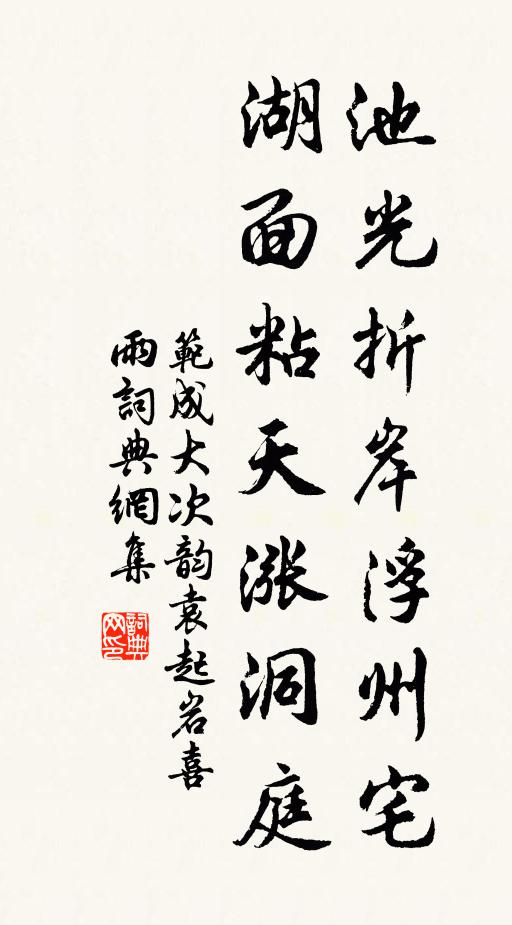 池光折岸浮州宅
湖面粘天漲洞庭
範成大次韵袁起岩喜
雨詞典網集
詞典
网印